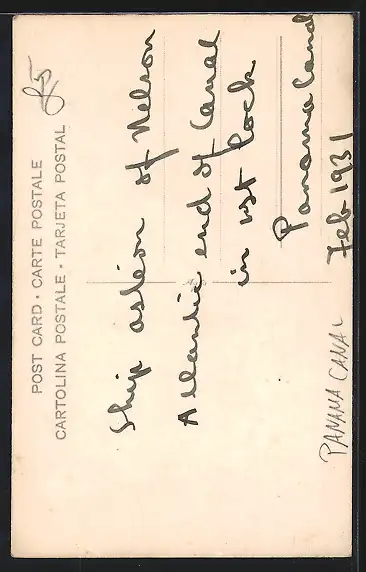 85
POST CARD · CARTE POSTALE
CARTOLINA POSTALE · TARJETA POSTAL
Ship astern of Nelson
Atlantic end of Canal
in 1st lock
Panama Canal
Feb 1931
PANAMA CANAL